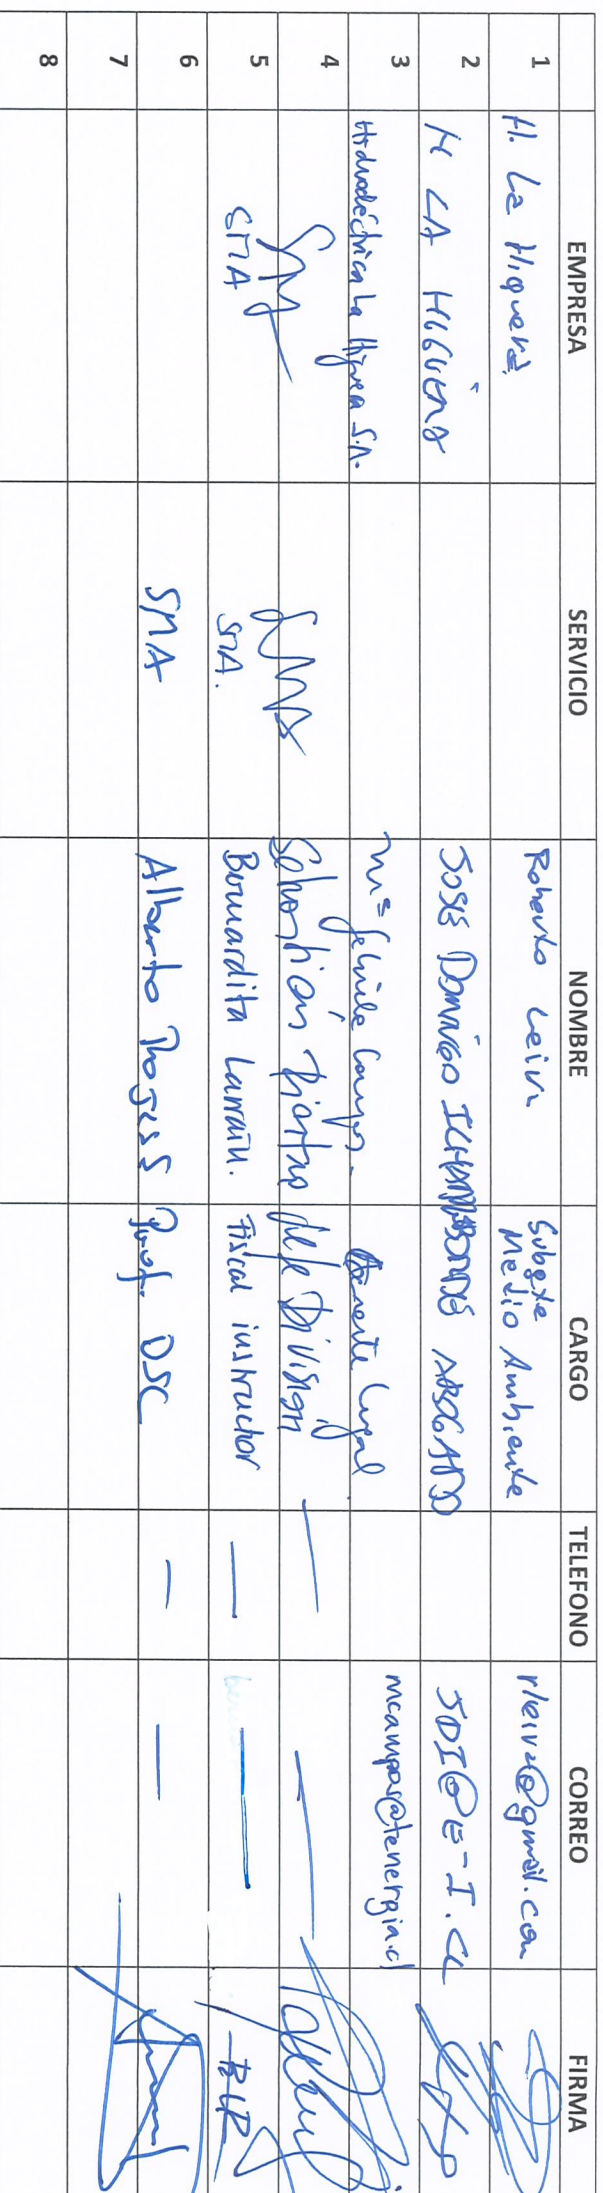 EMPRESA SERVICIO NOMBRE CARGO TELEFONO CORREO FIRMA
1 H. La Higuera Roberto Leiva Subgte Medio Ambiente rleiva@gmail.com
2 H LA HIGUERA JOSÉ DOMINGO ABOGADO JDI@E-I.CL
3 Hidroeléctrica La Higuera S.A. Mª Campos. Gerente Legal mcampos@tenergia.cl
4 SMA SMA Sebastián Jefe División —
5 SMA SMA. Bernardita Larraín. Fiscal instructor — — BLR
6 SMA Alberto Rojas Prof. DSC — —
7
8